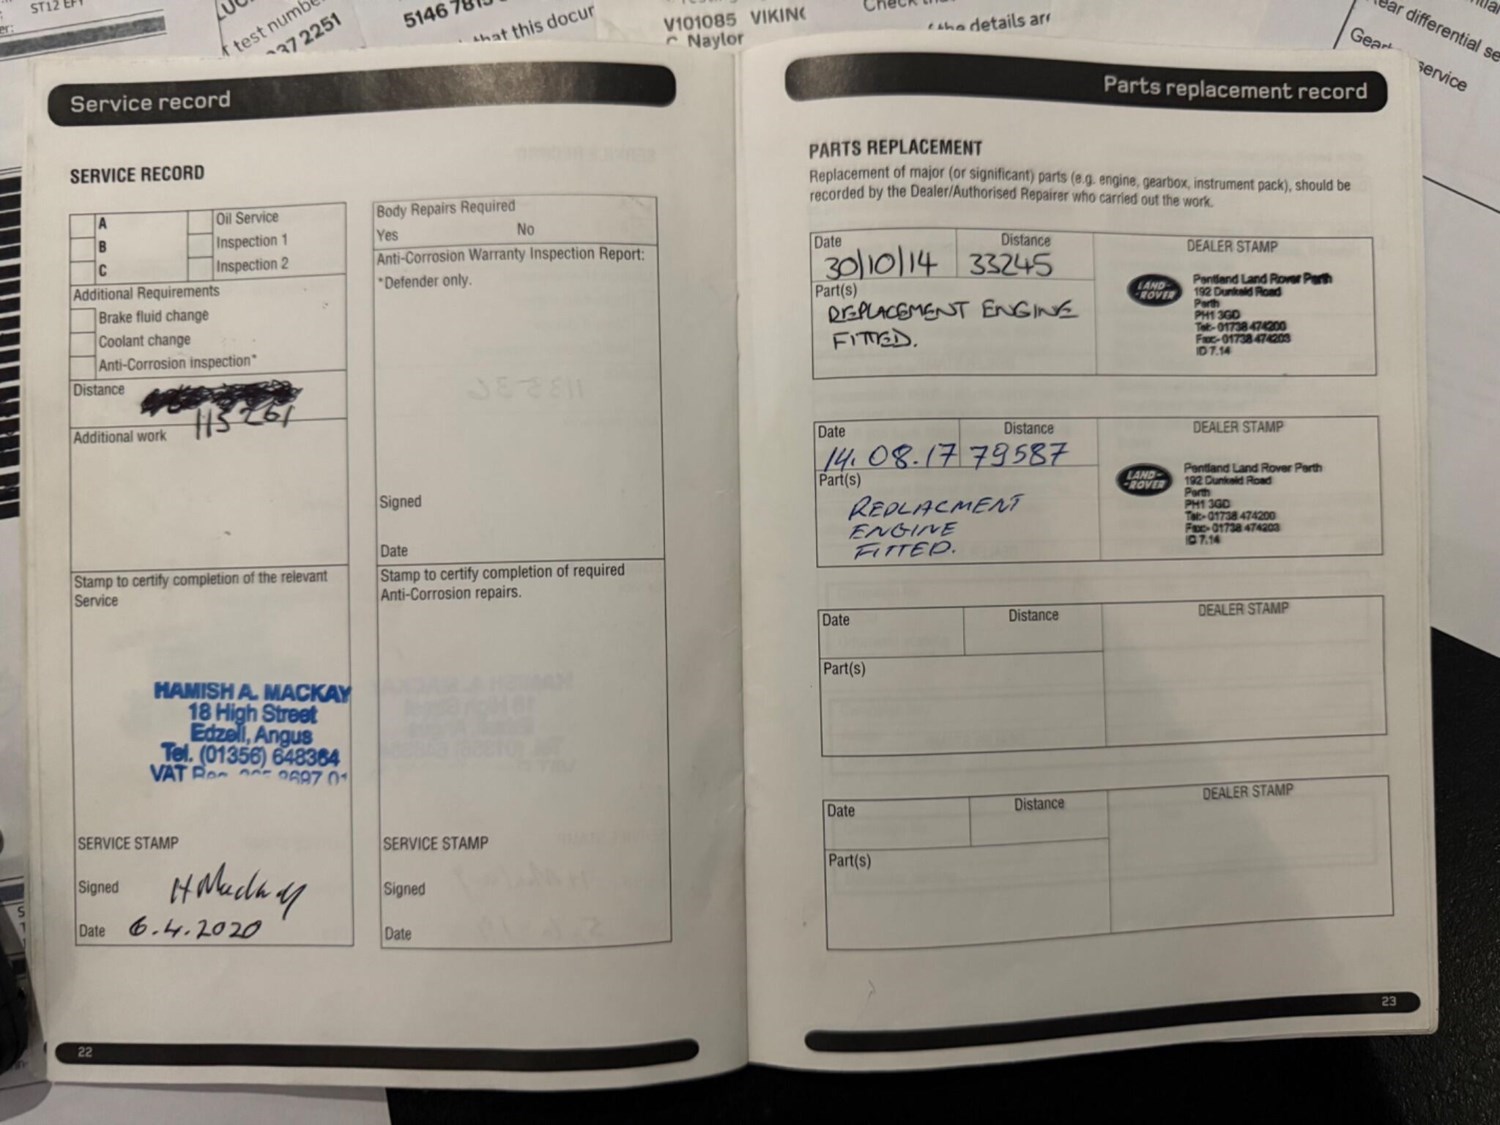 ST12 EF
r test number
37 2251
that this docur
V101085 VIKING
C Naylor
the details are
ear differential se
service
Service record
SERVICE RECORD
A
B
C
Oil Service
Inspection 1
Inspection 2
Additional Requirements
Brake fluid change
Coolant change
Anti-Corrosion inspection*
Distance
115261
Additional work
Stamp to certify completion of the relevant
Service
HAMISH A. MACKAY
18 High Street
Edzell, Angus
Tel. (01356) 648364
VAT
SERVICE STAMP
Signed H Mackay
Date 6.4.2020
22
Body Repairs Required
Yes No
Anti-Corrosion Warranty Inspection Report:
*Defender only.
Signed
Date
Stamp to certify completion of required
Anti-Corrosion repairs.
SERVICE STAMP
Signed
Date
Parts replacement record
PARTS REPLACEMENT
Replacement of major (or significant) parts (e.g. engine, gearbox, instrument pack), should be
recorded by the Dealer/Authorised Repairer who carried out the work.
Date Distance
30/10/14 33245
Part(s)
REPLACEMENT ENGINE
FITTED.
DEALER STAMP
LAND-
-ROVER
Pentland Land Rover Perth
192 Dunkeld Road
Perth
PH1 3GD
Tel:- 01738 474200
Fax:- 01738 474203
ID 7.14
Date Distance
14.08.17 79587
Part(s)
REPLACMENT
ENGINE
FITTED.
DEALER STAMP
LAND-
-ROVER
Pentland Land Rover Perth
192 Dunkeld Road
Perth
PH1 3GD
Tel:- 01738 474200
Fax:- 01738 474203
ID 7.14
Date Distance
Part(s)
DEALER STAMP
Date Distance
Part(s)
DEALER STAMP
23